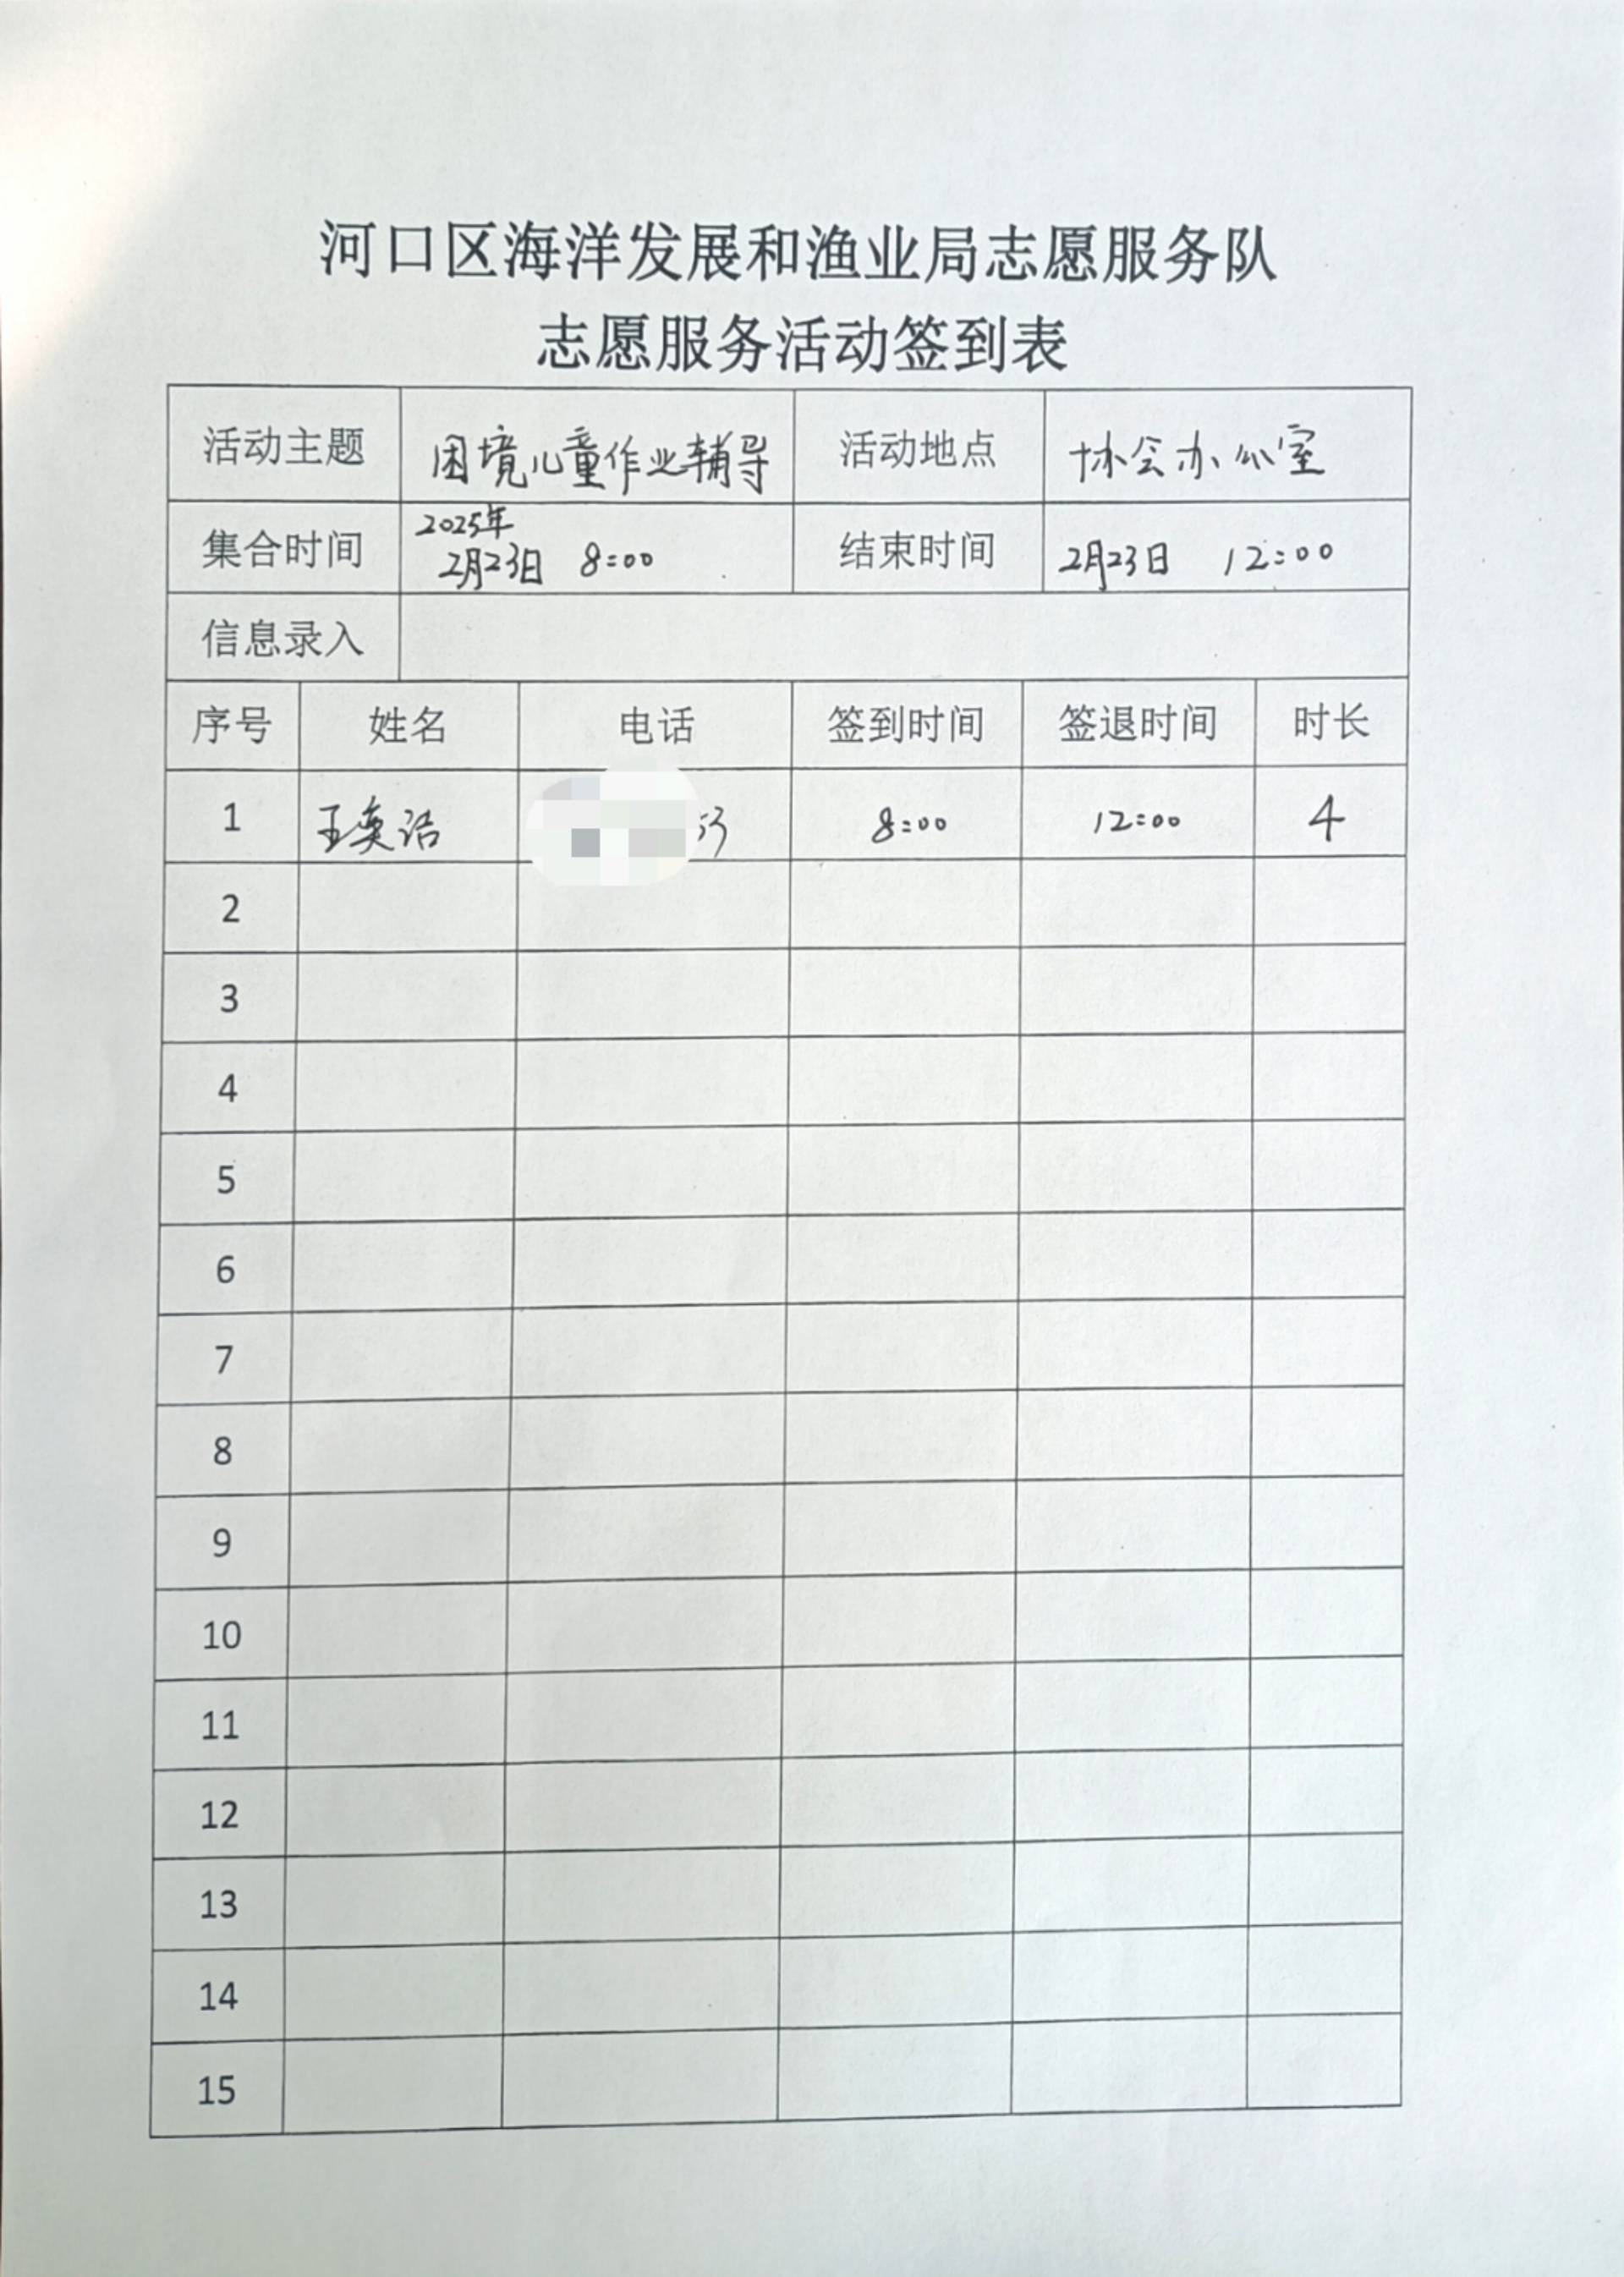 河口区海洋发展和渔业局志愿服务队
志愿服务活动签到表
活动主题 困境儿童作业辅导 活动地点 协会办公室
集合时间 2025年
2月23日 8:00 结束时间 2月23日 12:00
信息录入
序号 姓名 电话 签到时间 签退时间 时长
1 王奕洁 53 8:00 12:00 4
2
3
4
5
6
7
8
9
10
11
12
13
14
15